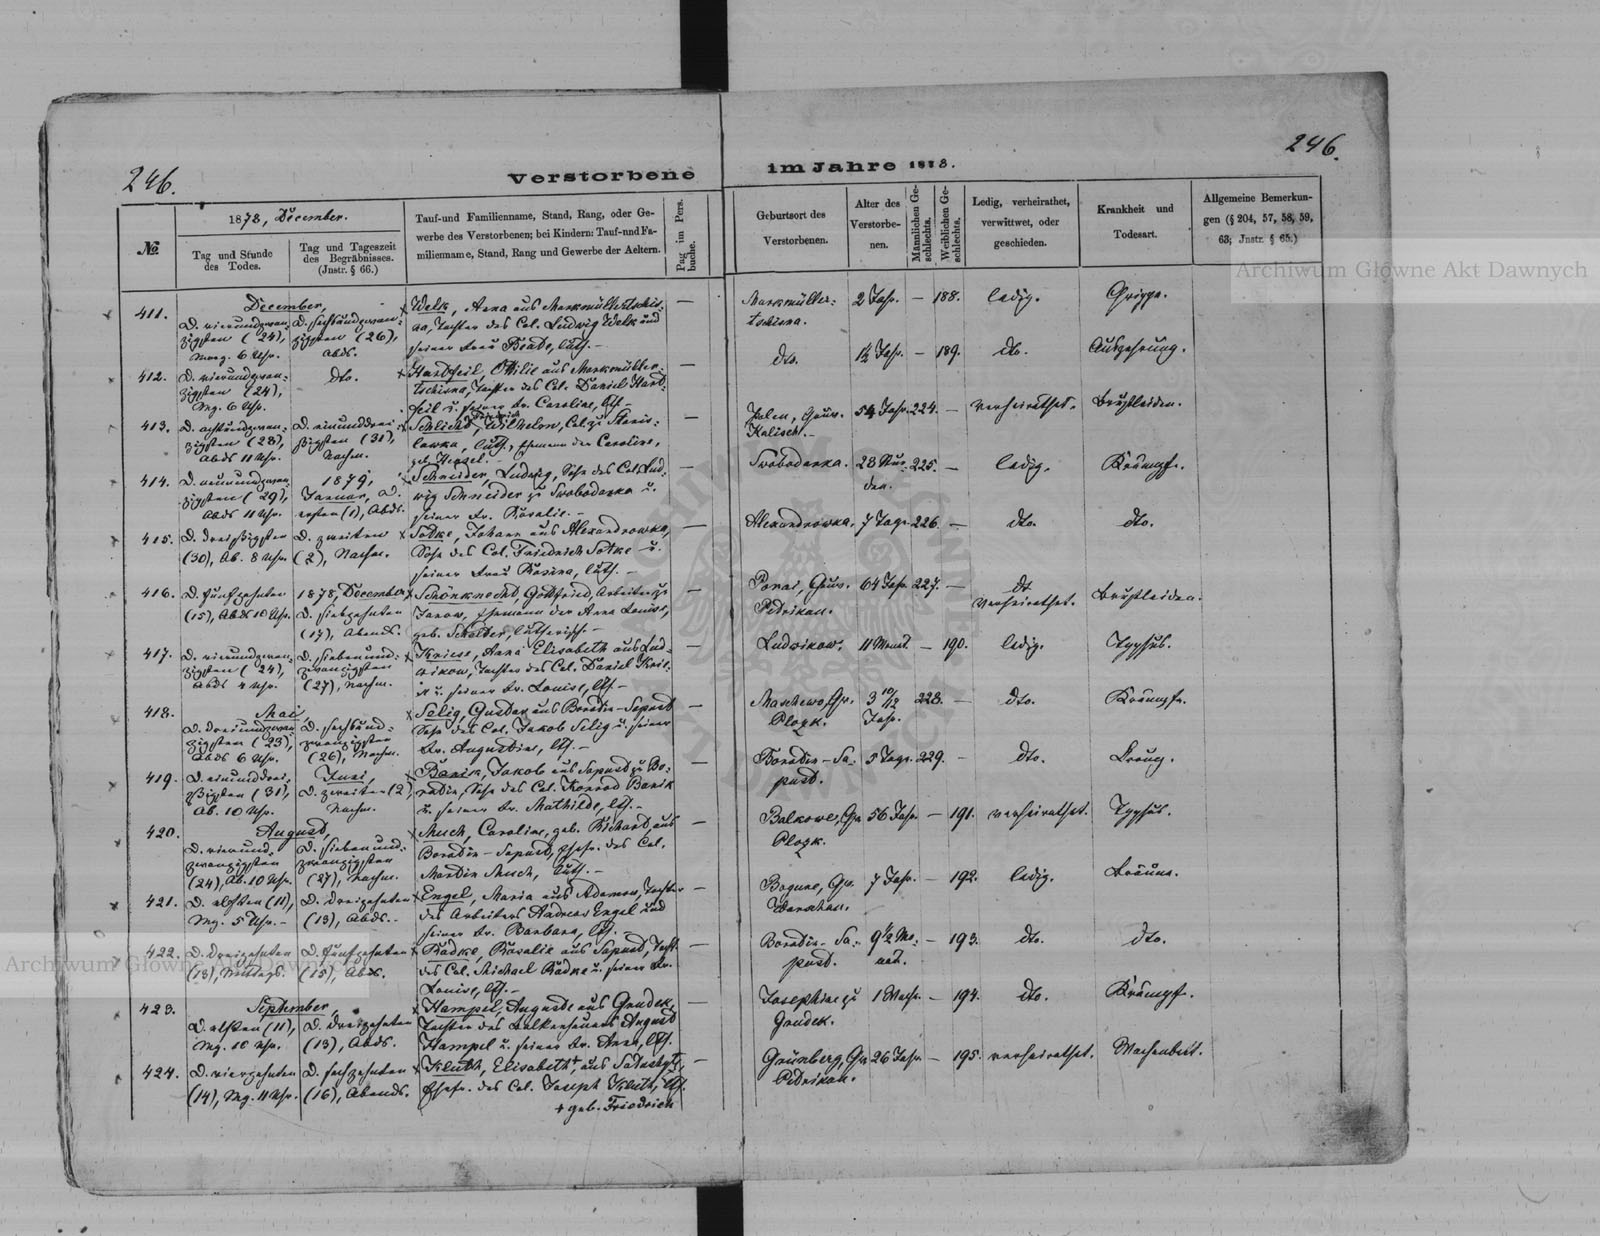 246.
246.
Verstorbene im Jahre 1878.
№
1878, December.
Tag und Stunde des Todes.
Tag und Tageszeit des Begräbnisses. (Jnstr. § 66.)
Tauf-und Familienname, Stand, Rang, oder Ge-
werbe des Verstorbenen; bei Kindern: Tauf-und Fa-
milienname, Stand, Rang und Gewerbe der Aeltern.
Pag im Pers. buche.
Geburtsort des Verstorbenen.
Alter des Verstorbe-nen.
Männlichen Ge-schlechts.
Weiblichen Ge-schlechts.
Ledig, verheirathet, verwittwet, oder geschieden.
Krankheit und Todesart.
Allgemeine Bemerkun-
gen (§ 204, 57, 58, 59,
63; Jnstr. § 65.)
Archiwum Główne Akt Dawnych
411.
December,
D. vierundzwan-
zigsten (24),
Morg. 6 Uhr.
D. sechsundzwan-
zigsten (26),
Abds.
Welk, Anna aus Markmüllertschis-
na, Tochter des Col. Ludwig Welk und
seiner Frau Beate, luth. –
—
Markmüller-
tschisna.
2 Jahr. — 188. ledig. Grippe.
412.
D. vierundzwan-
zigsten (24),
Mg. 6 Uhr.
dto.
Hardfeil, Ottilie aus Markmüller-
tschisna, Tochter des Col. Daniel Hard-
feil u. seiner Fr. Caroline, lth. –
—
dto. 1½ Jahr. — 189. dto. Auszehrung.
413.
D. achtundzwan-
zigsten (28),
Abds 11 Uhr.
D. einunddrei-
ßigsten (31),
Nachm.
Friedrich
Schlicht, Wilhelm, Col. zu Stanis-
lawka, luth., Ehemann der Caroline,
geb. Henzel. –
—
Polen, Gouv.
Kalisch. –
54 Jahr. 224. — verheirathet. Brustleiden.
414.
D. neunundzwan-
zigsten (29),
Abds 11 Uhr.
1879,
Januar, D.
ersten (1), Abds.
Schneider, Ludwig, Sohn des Col. Lud-
wig Schneider zu Swobodarka u.
seiner Fr. Rosalie. –
—
Swobodarka. 28 Stun-
den.
225. — ledig. Krämpfe.
415.
D. dreißigsten
(30), Ab. 8 Uhr.
D. zweiten
(2), Nachm.
Sodke, Johann aus Alexandrowka,
Sohn des Col. Friedrich Sodke u.
seiner Frau Rosina, luth. –
—
Alexandrowka. 7 Tage. 226. — dto. dto.
416.
D. fünfzehnten
(15), Abds 10 Uhr.
1878, December,
D. siebzehnten
(17), Abends.
Schönknecht, Gottfried, Arbeiter zu
Janow, Ehemann der Anna Louise,
geb. Schelder, lutherisch. –
Gouv.
Petrikau.
64 Jahr. 227. — dt
verheirathet. Brustleiden.
417.
D. vierundzwan-
zigsten (24),
Abds 4 Uhr.
D. siebenund-
zwanzigsten
(27), Nachm.
Kriese, Anna Elisabeth aus Lud-
wikow, Tochter des Col. Daniel
u. seiner Fr. Louise, lth. –
—
Ludwikow. 11 Monat. — 190. ledig. Typhus.
418.
Mai,
D. dreiundzwan-
zigsten (23),
Abds 6 Uhr.
D. sechsund-
zwanzigsten
(26), Nachm.
Selig, Gustav aus Boratin-Sapust
Sohn des Col. Jakob Selig u. seiner
Fr. Augustine, lth. –
—
Maschewo, Gv.
Plozk.
3 10/12
Jahr.
228. — dto. Krämpfe.
419.
D. einunddrei-
ßigsten (31),
Ab. 10 Uhr.
Juni,
D. zweiten (2),
Nachm.
Banik, Jakob aus Sapust zu Bo-
ratin, Sohn des Col. Konrad Banik
u. seiner Fr. Mathilde, lth. –
—
Boratin-Sa-
pust.
5 Tage. 229. — dto.
420.
August,
D. vierund-
zwanzigsten
(24), Ab. 10 Uhr.
D. siebenund-
zwanzigsten
(27), Nachm.
Much, Caroline, geb. Richard, aus
Boratin-Sapust, Ehefr. des Col.
Martin Much, luth. –
—
Balkowo, Gv.
Plozk.
56 Jahr. — 191. verheirathet. Typhus.
421.
D. elften (11),
Mg. 5 Uhr. –
D. dreizehnten
(13), Abds. –
Engel, Maria aus Adamow, Tochter
des Arbeiters Andreas Engel und
seiner Fr. Barbara, lth. –
—
Gv.
Warschau.
7 Jahr. — 192. ledig. Bräune.
422.
D. dreizehnten
(13), Mittags.
D. fünfzehnten
(15), Abds.
Radke, Rosalie aus Sapust, Tocht.
des Col. Michael Radke u. seiner Fr.
Louise, lth. –
—
Boratin-Sa-
pust.
9½ Mo-
nat.
— 193. dto. dto.
423.
September,
D. elften (11),
Mg. 10 Uhr.
D. dreizehnten
(13), Abds.
Hampel, Auguste aus Grudek,
Tochter des August
Hampel u. seiner Fr. Anna, lth.
—
Josephine zu
Grudek.
1 Woche. — 194. dto. Krämpfe.
424.
D. vierzehnten
(14), Mg. 11 Uhr.
D. sechzehnten
(16), Abends.
Kluth, Elisabeth+, aus
Ehefr. des Col. Joseph Kluth, lth.
+ geb. Friedrich
—
Grünberg, Gv.
Petrikau.
26 Jahr. — 195. verheirathet. Wochenbett.
Archiwum Główne Akt Dawnych